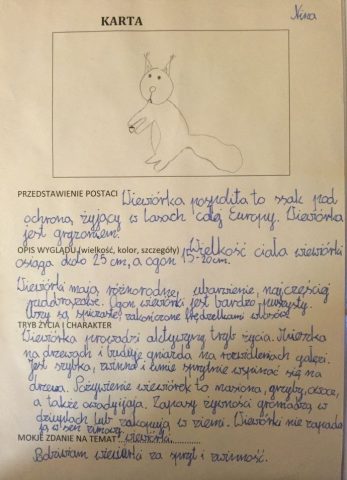 Nina
KARTA
PRZEDSTAWIENIE POSTACI Wiewiórka pospolita to ssak pod
ochroną, żyjący w lasach całej Europy. Wiewiórka
jest gryzoniem.
OPIS WYGLĄDU (wielkość, kolor, szczegóły) Wielkość ciała wiewiórki
osiąga około 25 cm, a ogon 15-20cm.
Wiewiórki mają różnorodne ubarwienie, najczęściej
rudobrązowe. Ogon wiewiórki jest bardzo puszysty.
Uszy są spiczaste, zakończone pędzelkami włosów.
TRYB ŻYCIA I CHARAKTER
Wiewiórka prowadzi aktywny tryb życia. Mieszka
na drzewach i buduje gniazda na rozwidleniach gałęzi.
Jest szybka, zwinna i umie sprytnie wspinać się na
drzewa. Pożywienie wiewiórek to nasiona, grzyby, owoce,
a także jaja. Zapasy żywności gromadzą w
dziuplach lub zakopują w ziemi. Wiewiórki nie zapada
ją w sen zimowy.
MOJE ZDANIE NA TEMAT wiewiórki
Podziwiam wiewiórki za spryt i zwinność.